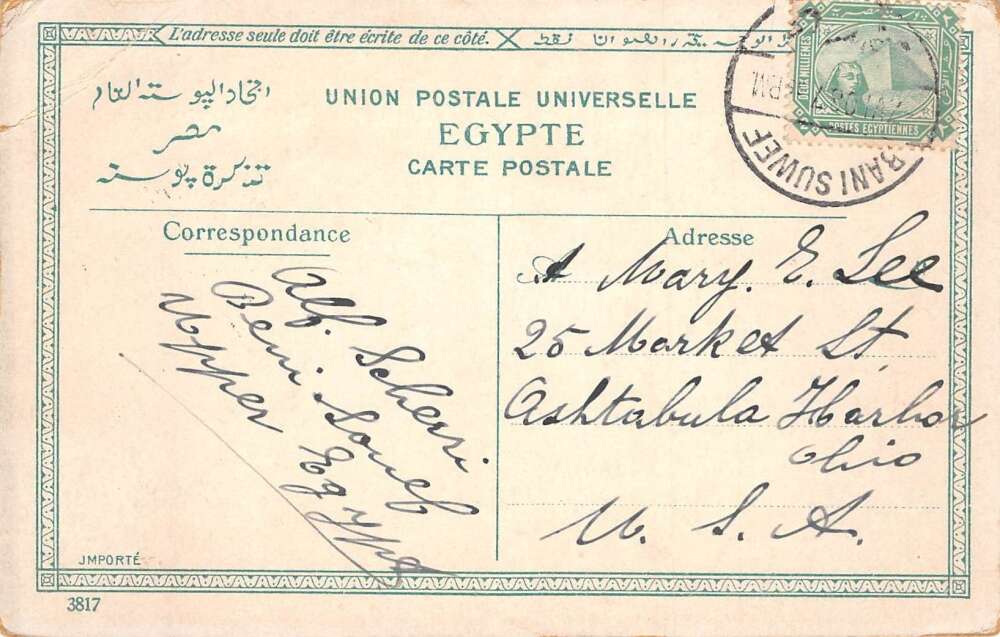 L'adresse seule doit être écrite de ce côté.
اتحاد البوسته العام
مصر
تذكرة بوسته
UNION POSTALE UNIVERSELLE
EGYPTE
CARTE POSTALE
DEUX MILLIEMES
POSTES EGYPTIENNES
BANI SUWEF
PM
Correspondance
Alf. Scheari
Beni-Souef
Upper Egypt
Adresse
A Mary. E. Lee
25 Market St
Ashtabula Harbor
Ohio
U. S. A.
JMPORTÉ
3817